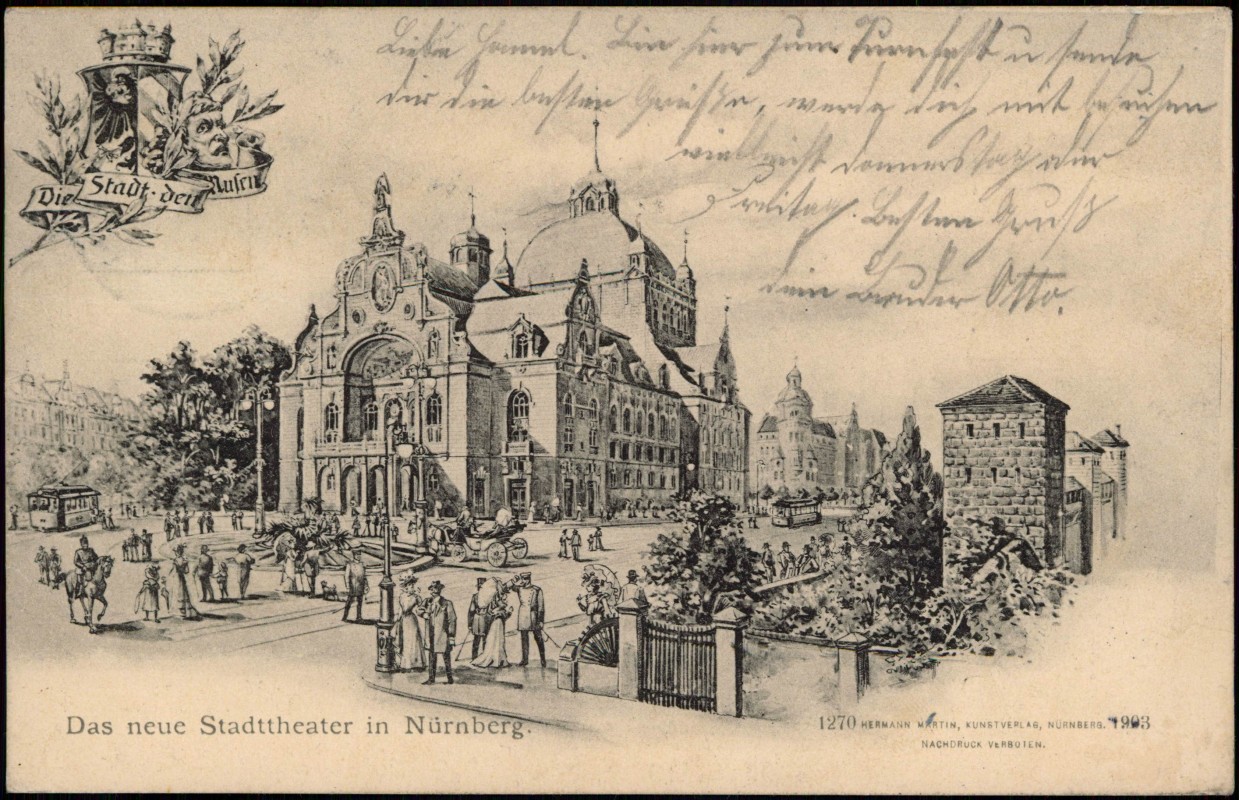 Die Stadt · der Musen
Lieber Hannes. Bin hier zum Turnfest u sende
dir die besten Grüße, werde dich mit besuchen
vielleicht Donnerstag oder
Freitag. Besten Gruß
dein Bruder Otto.
Das neue Stadttheater in Nürnberg.
1270 HERMANN MARTIN, KUNSTVERLAG, NÜRNBERG. 1903
NACHDRUCK VERBOTEN.